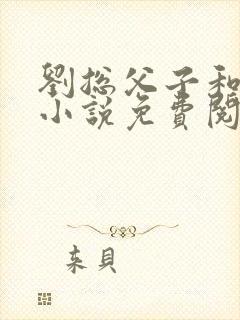 劉總父子和
小說免費閱
来貝